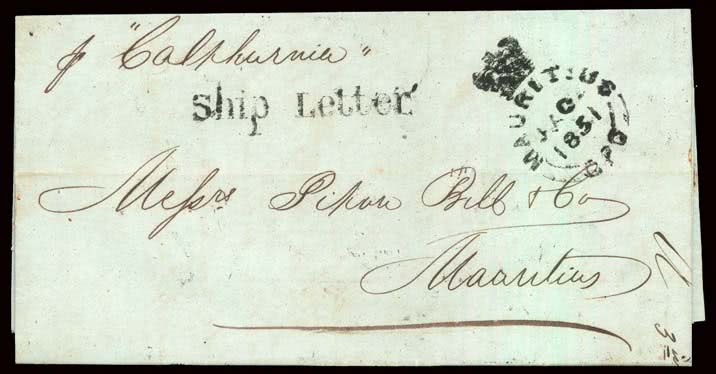 p "Calphurnia"
Ship Letter
MAURITIUS GPO
1851
Messrs Pipon Bell & Co
Mauritius